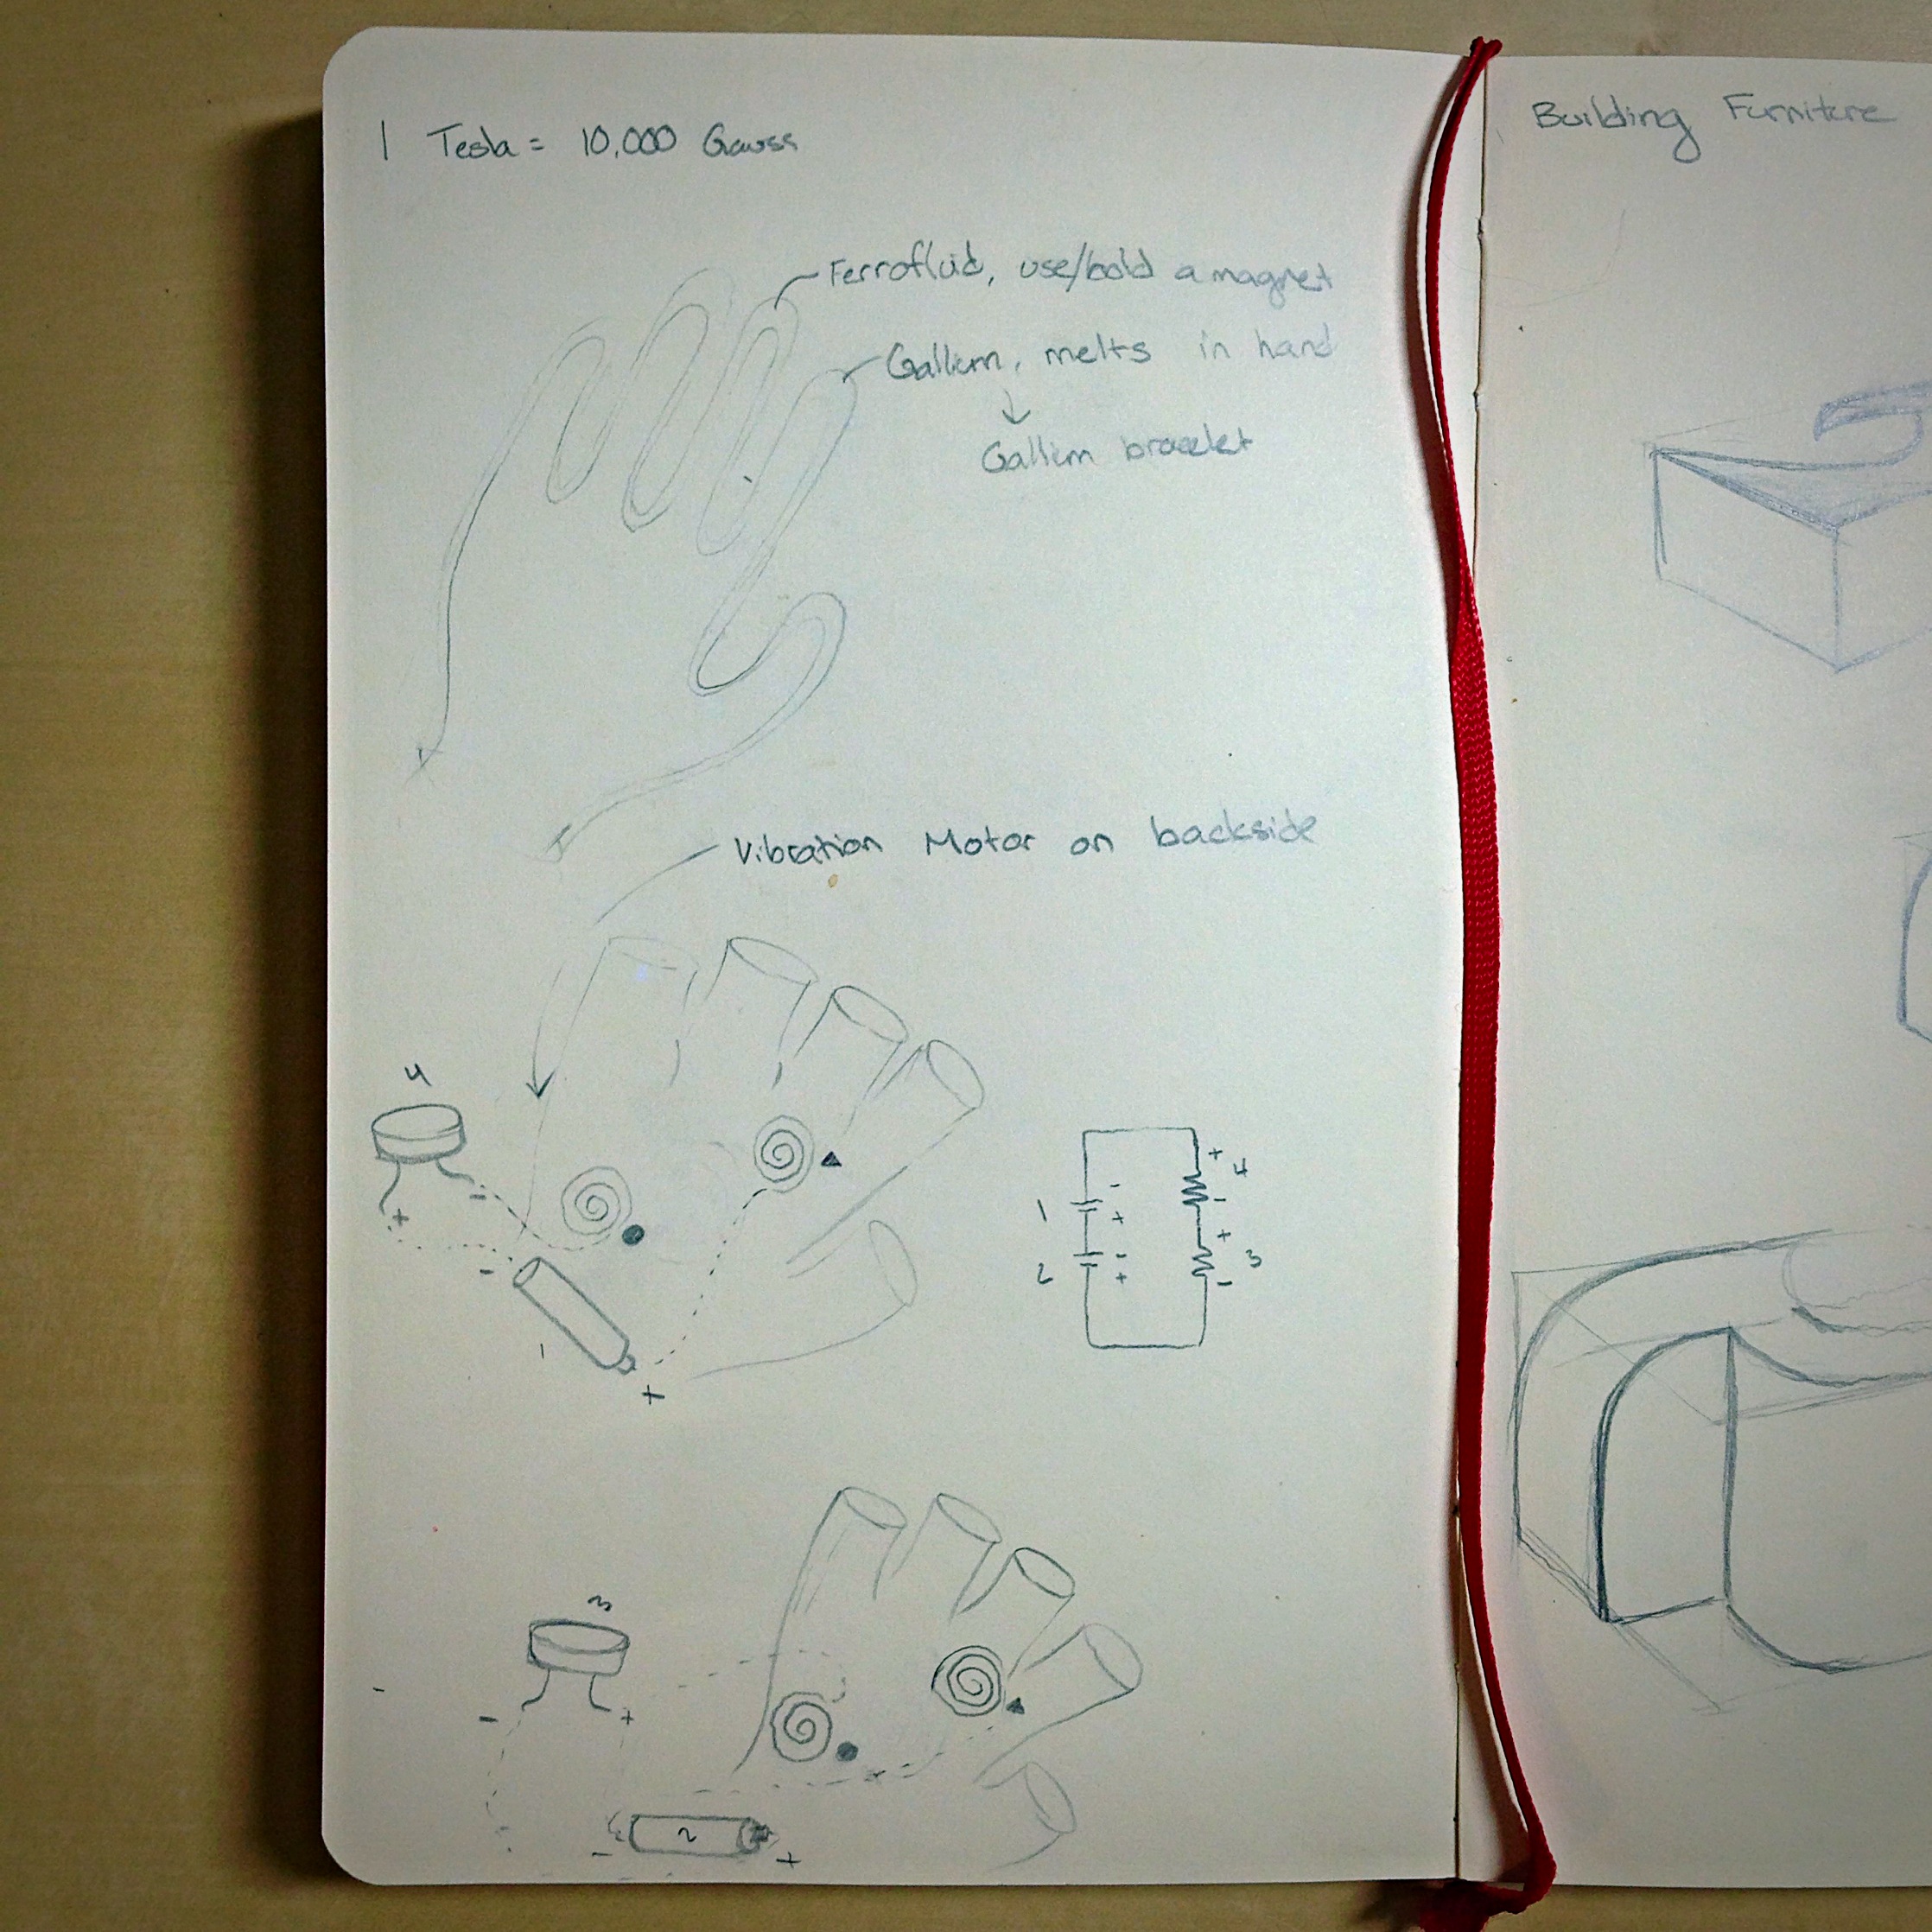 1 Tesla = 10,000 Gauss
Ferrofluid, use/bold a magnet
Gallium, melts in hand
↓
Gallium bracelet
Vibration Motor on backside
4
- +
-
1
+
- + 4
1 + -
- + 3
2 + -
3
- +
2
- +
Building Furniture